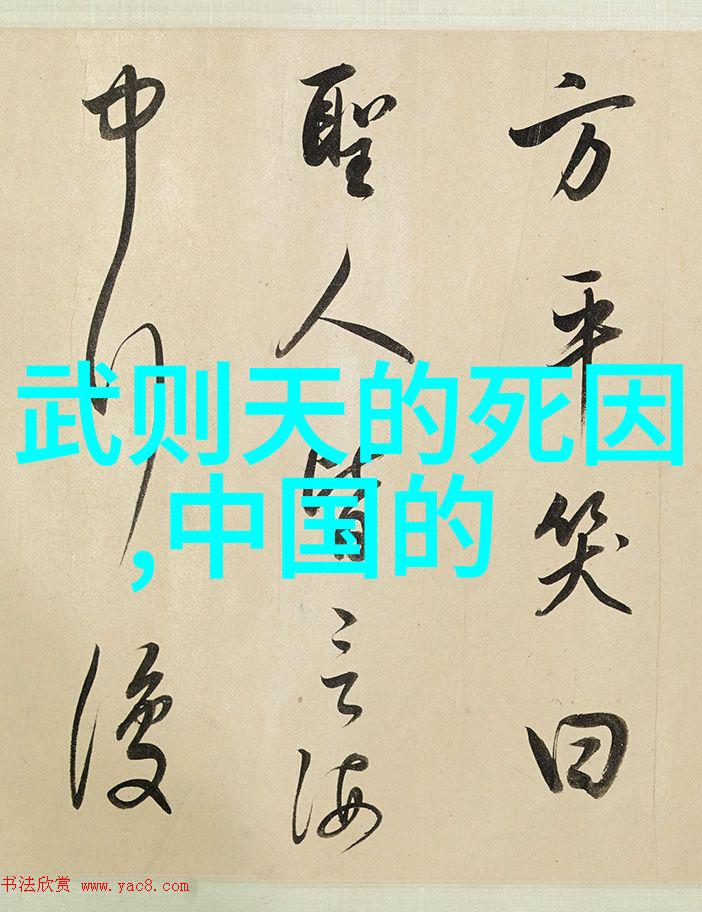 方平笑曰
聖人皆言海
中行復
武则天的死因
,中国的
书法欣赏 www.yac8.com